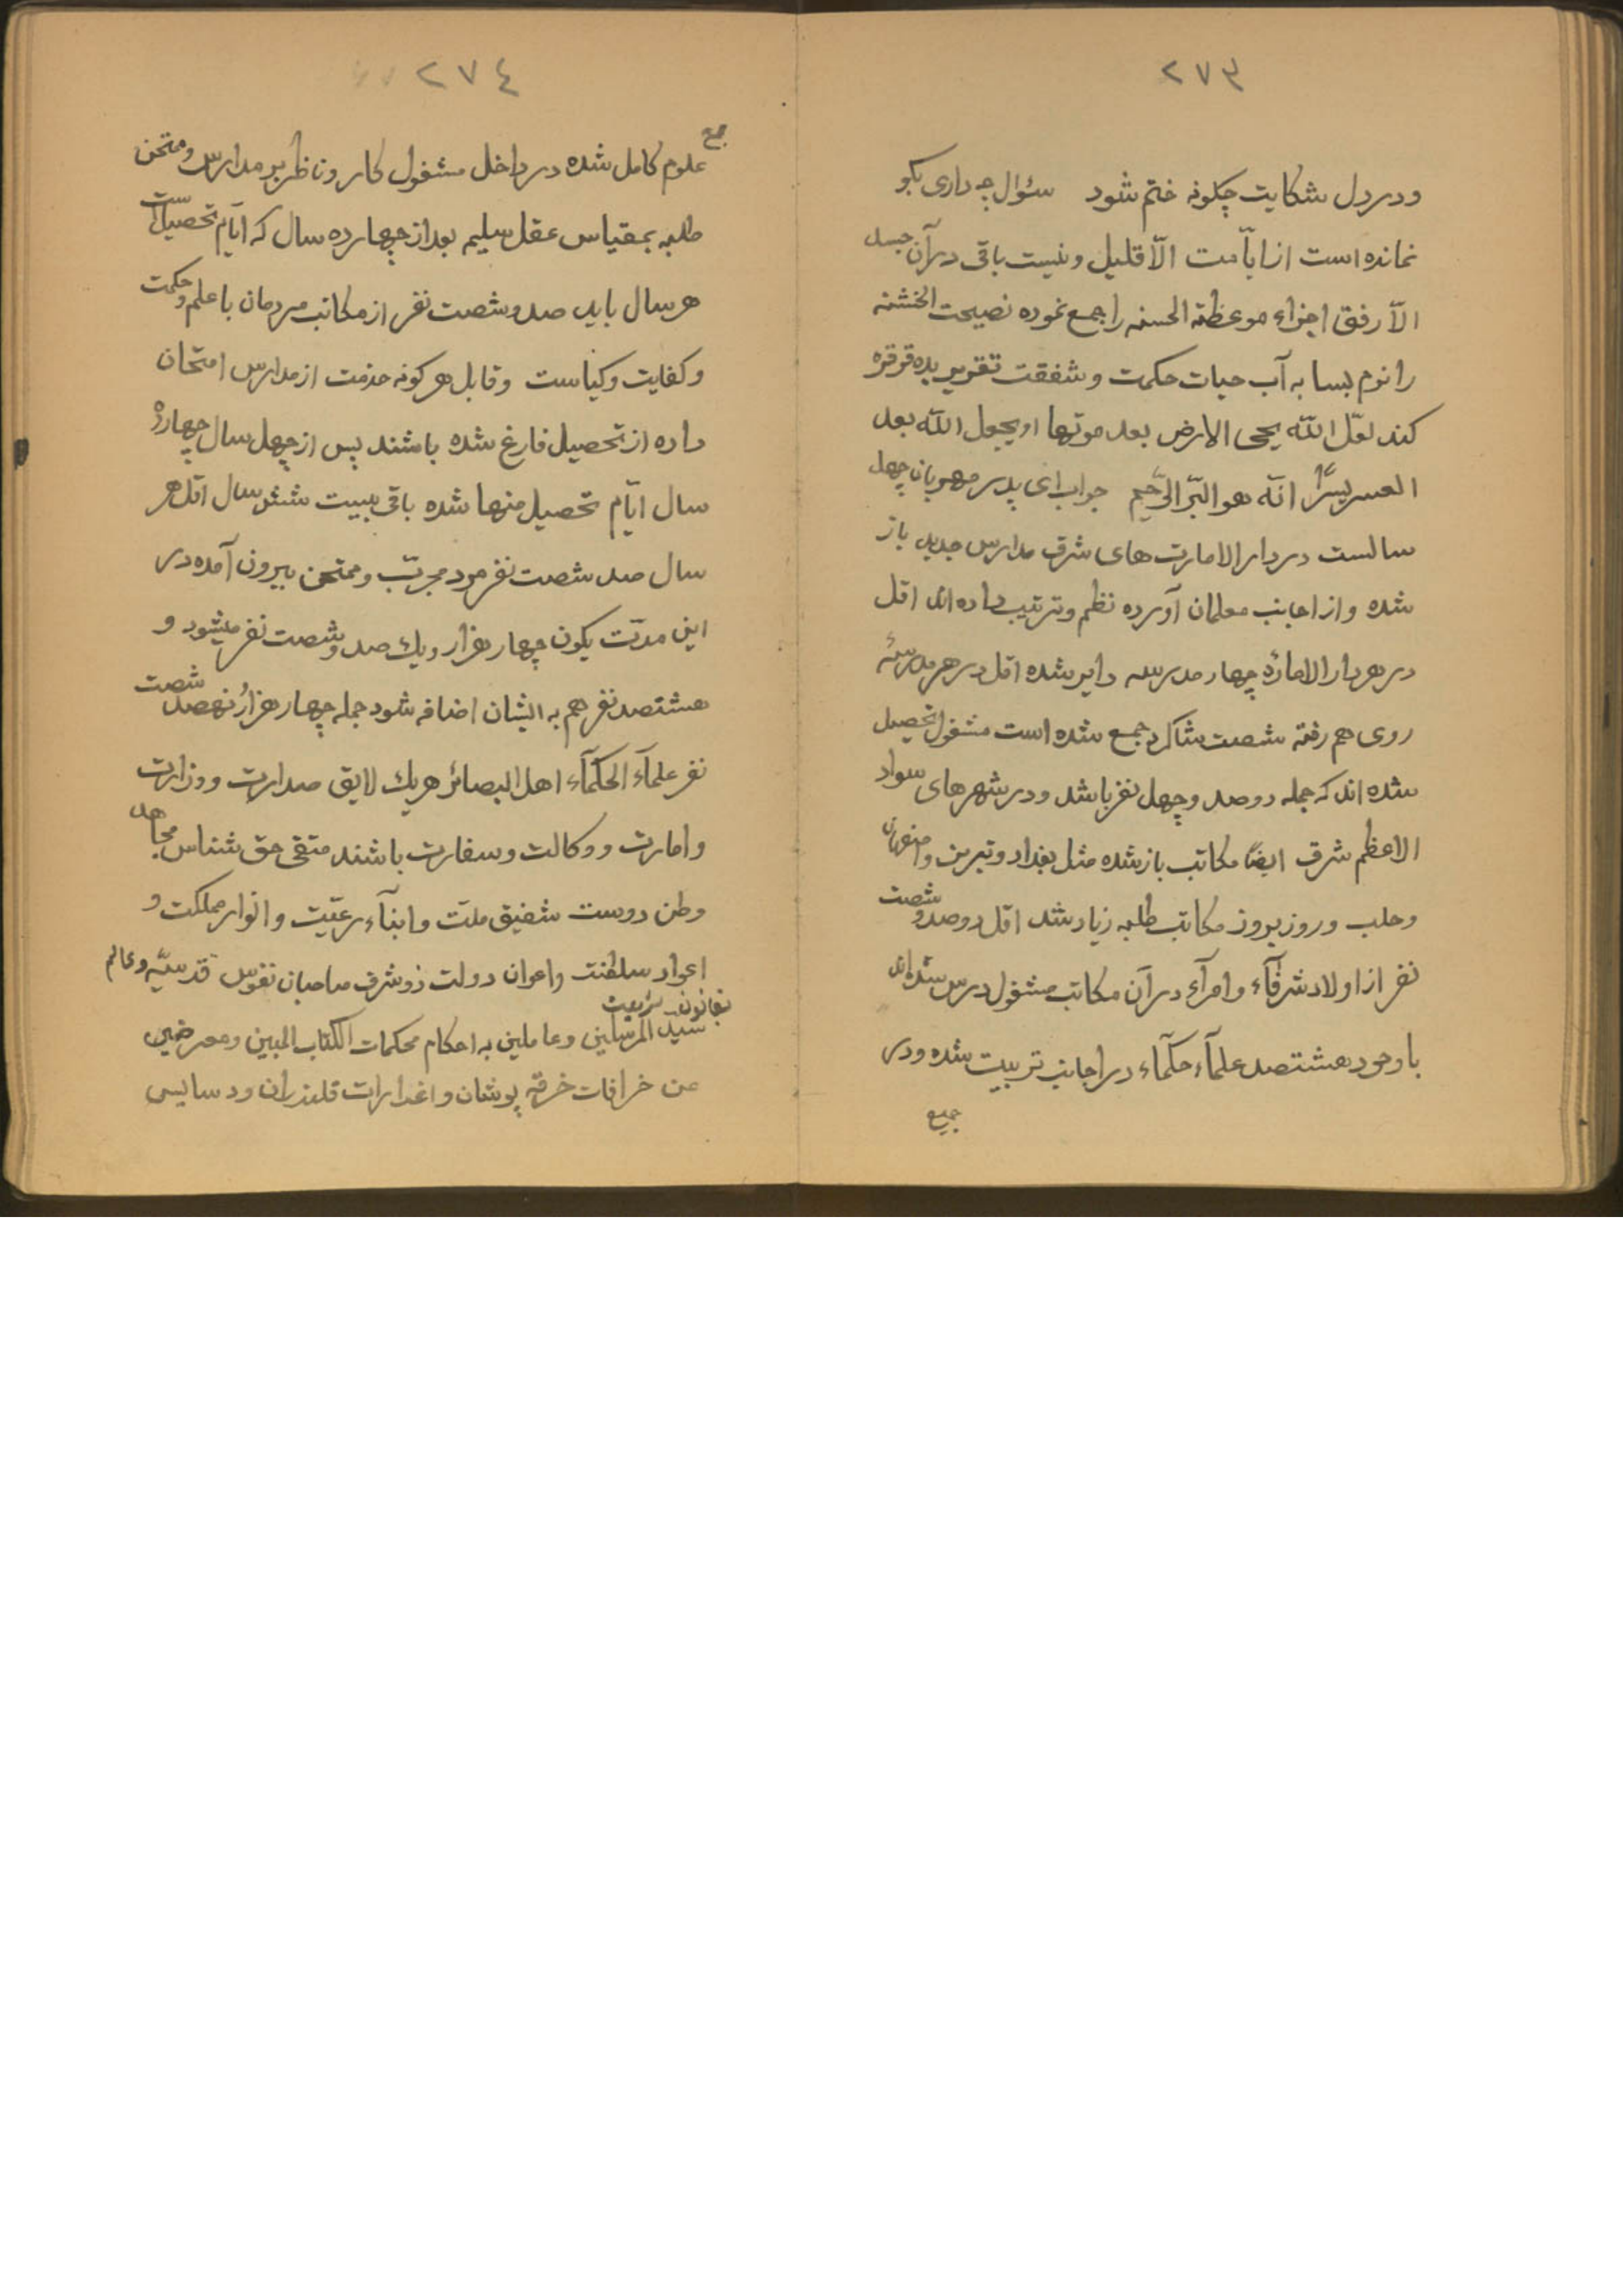 ۲۷۳
ودر دل شکایت چکونه ختم شود سئوال چه داری بکو
نمانده است از ایّامت الّا قلیل ونیست باقی در آن جسد
الّا رفق اجزاء موعظة الحسنه را جمع نموده نصیحت الخشنه
را نرم بسا به آب حیات حکمت وشفقت تقریر بده قرقره
کند لعلّ الله یحیی الارض بعد موتها او یجعل الله بعد
العسر یسرًا انّه هو البرّ الرّحیم جواب ای پدر مهربان چهل
سالست در دار الامارت های شرق مدارس جدید باز
شده واز اجانب معلمان آورده نظم وترتیب داده اند اقل
در هر دار الامارة چهار مدرسه دایر شده اقل در هر مدرسهٔ
روی هم رفته شصت شاکرد جمع شده است مشغول تحصیل
شده اند که جمله دوصد وچهل نفر باشد ودر شهرهای سواد
الاعظم شرق ایضًا مکاتب باز شده مثل بغداد وتبریز واصفهان
وحلب وروز بروز مکاتب طلبه زیاد شد اقل دوصد وشصت
نفر از اولاد شرفآء وامرآء در آن مکاتب مشغول درس شده اند
با وجود هشتصد علمآء حکمآء در اجانب تربیت شده ودر
جمیع
۲۷٤
جمیع
علوم کامل شده در داخل مشغول کار وناظر بر مدارس وممتحن
طلبه بمقیاس عقل سلیم بعد از چهارده سال که ایّام تحصیل است
هر سال باید صد وشصت نفر از مکاتب مردمان با علم وحکمت
وکفایت وکیاست وقابل هر کونه خدمت از مدارس امتحان
داده از تحصیل فارغ شده باشند پس از چهل سال چهارده
سال ایّام تحصیل منها شده باقی بیست شش سال اقل هر
سال صد شصت نفر مرد مجرّب وممتحن بیرون آمده در
این مدّت یکون چهار هزار ویك صد وشصت نفر میشود و
هشتصد نفر هم به ایشان اضافه شود جمله چهار هزار ونهصد شصت
نفر علمآء الحکمآء اهل البصائر هریك لایق صدارت ووزارت
وامارت ووکالت وسفارت باشند متقی حق شناس مجاهد
وطن دوست شفیق ملّت وابنآء رعیّت وانوار مملکت و
اعواد سلطنت واعوان دولت ذو شرف صاحبان نفوس قدسیّه وعالم
بقانون شریعت
سیّد المرسلین وعاملین به احکام محکمات الکتاب المبین ومعرضین
عن خرافات خرقه پوشان واغدارات قلندران ودسایس